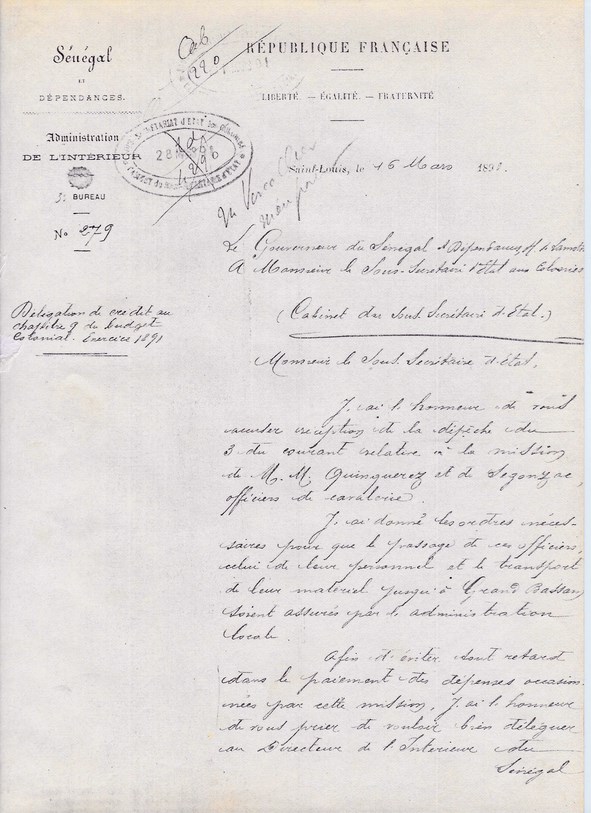 Sénégal
ET
DÉPENDANCES.
Administration
DE L'INTÉRIEUR
3e BUREAU
No 279
Cab
1290
RÉPUBLIQUE FRANÇAISE
LIBERTÉ. — ÉGALITÉ. — FRATERNITÉ
Saint-Louis, le 16 Mars 1891.
Le Gouverneur du Sénégal et Dépendances,
A Monsieur le Sous-Secrétaire d'Etat aux Colonies
(Cabinet du Sous Secrétaire d'Etat.)
Délégation de crédit au
chapitre 9 du budget
Colonial. Exercice 1891
Monsieur le Sous. Secrétaire d'Etat,
J'ai l'honneur de vous
accuser réception de la dépêche du
3 du courant relative à la mission
de M. M. Quinquerez et de Segonzac,
officiers de cavalerie.
J'ai donné les ordres néces-
saires pour que le passage de ces officiers,
celui de leur personnel et le transport
de leur matériel jusqu'à Grand Bassam
soient assurés par l'administration
locale.
Afin d'éviter tout retard
dans le paiement des dépenses occasion-
nées par cette mission, J'ai l'honneur
de vous prier de vouloir bien déléguer
au Directeur de l'Intérieur du
Sénégal